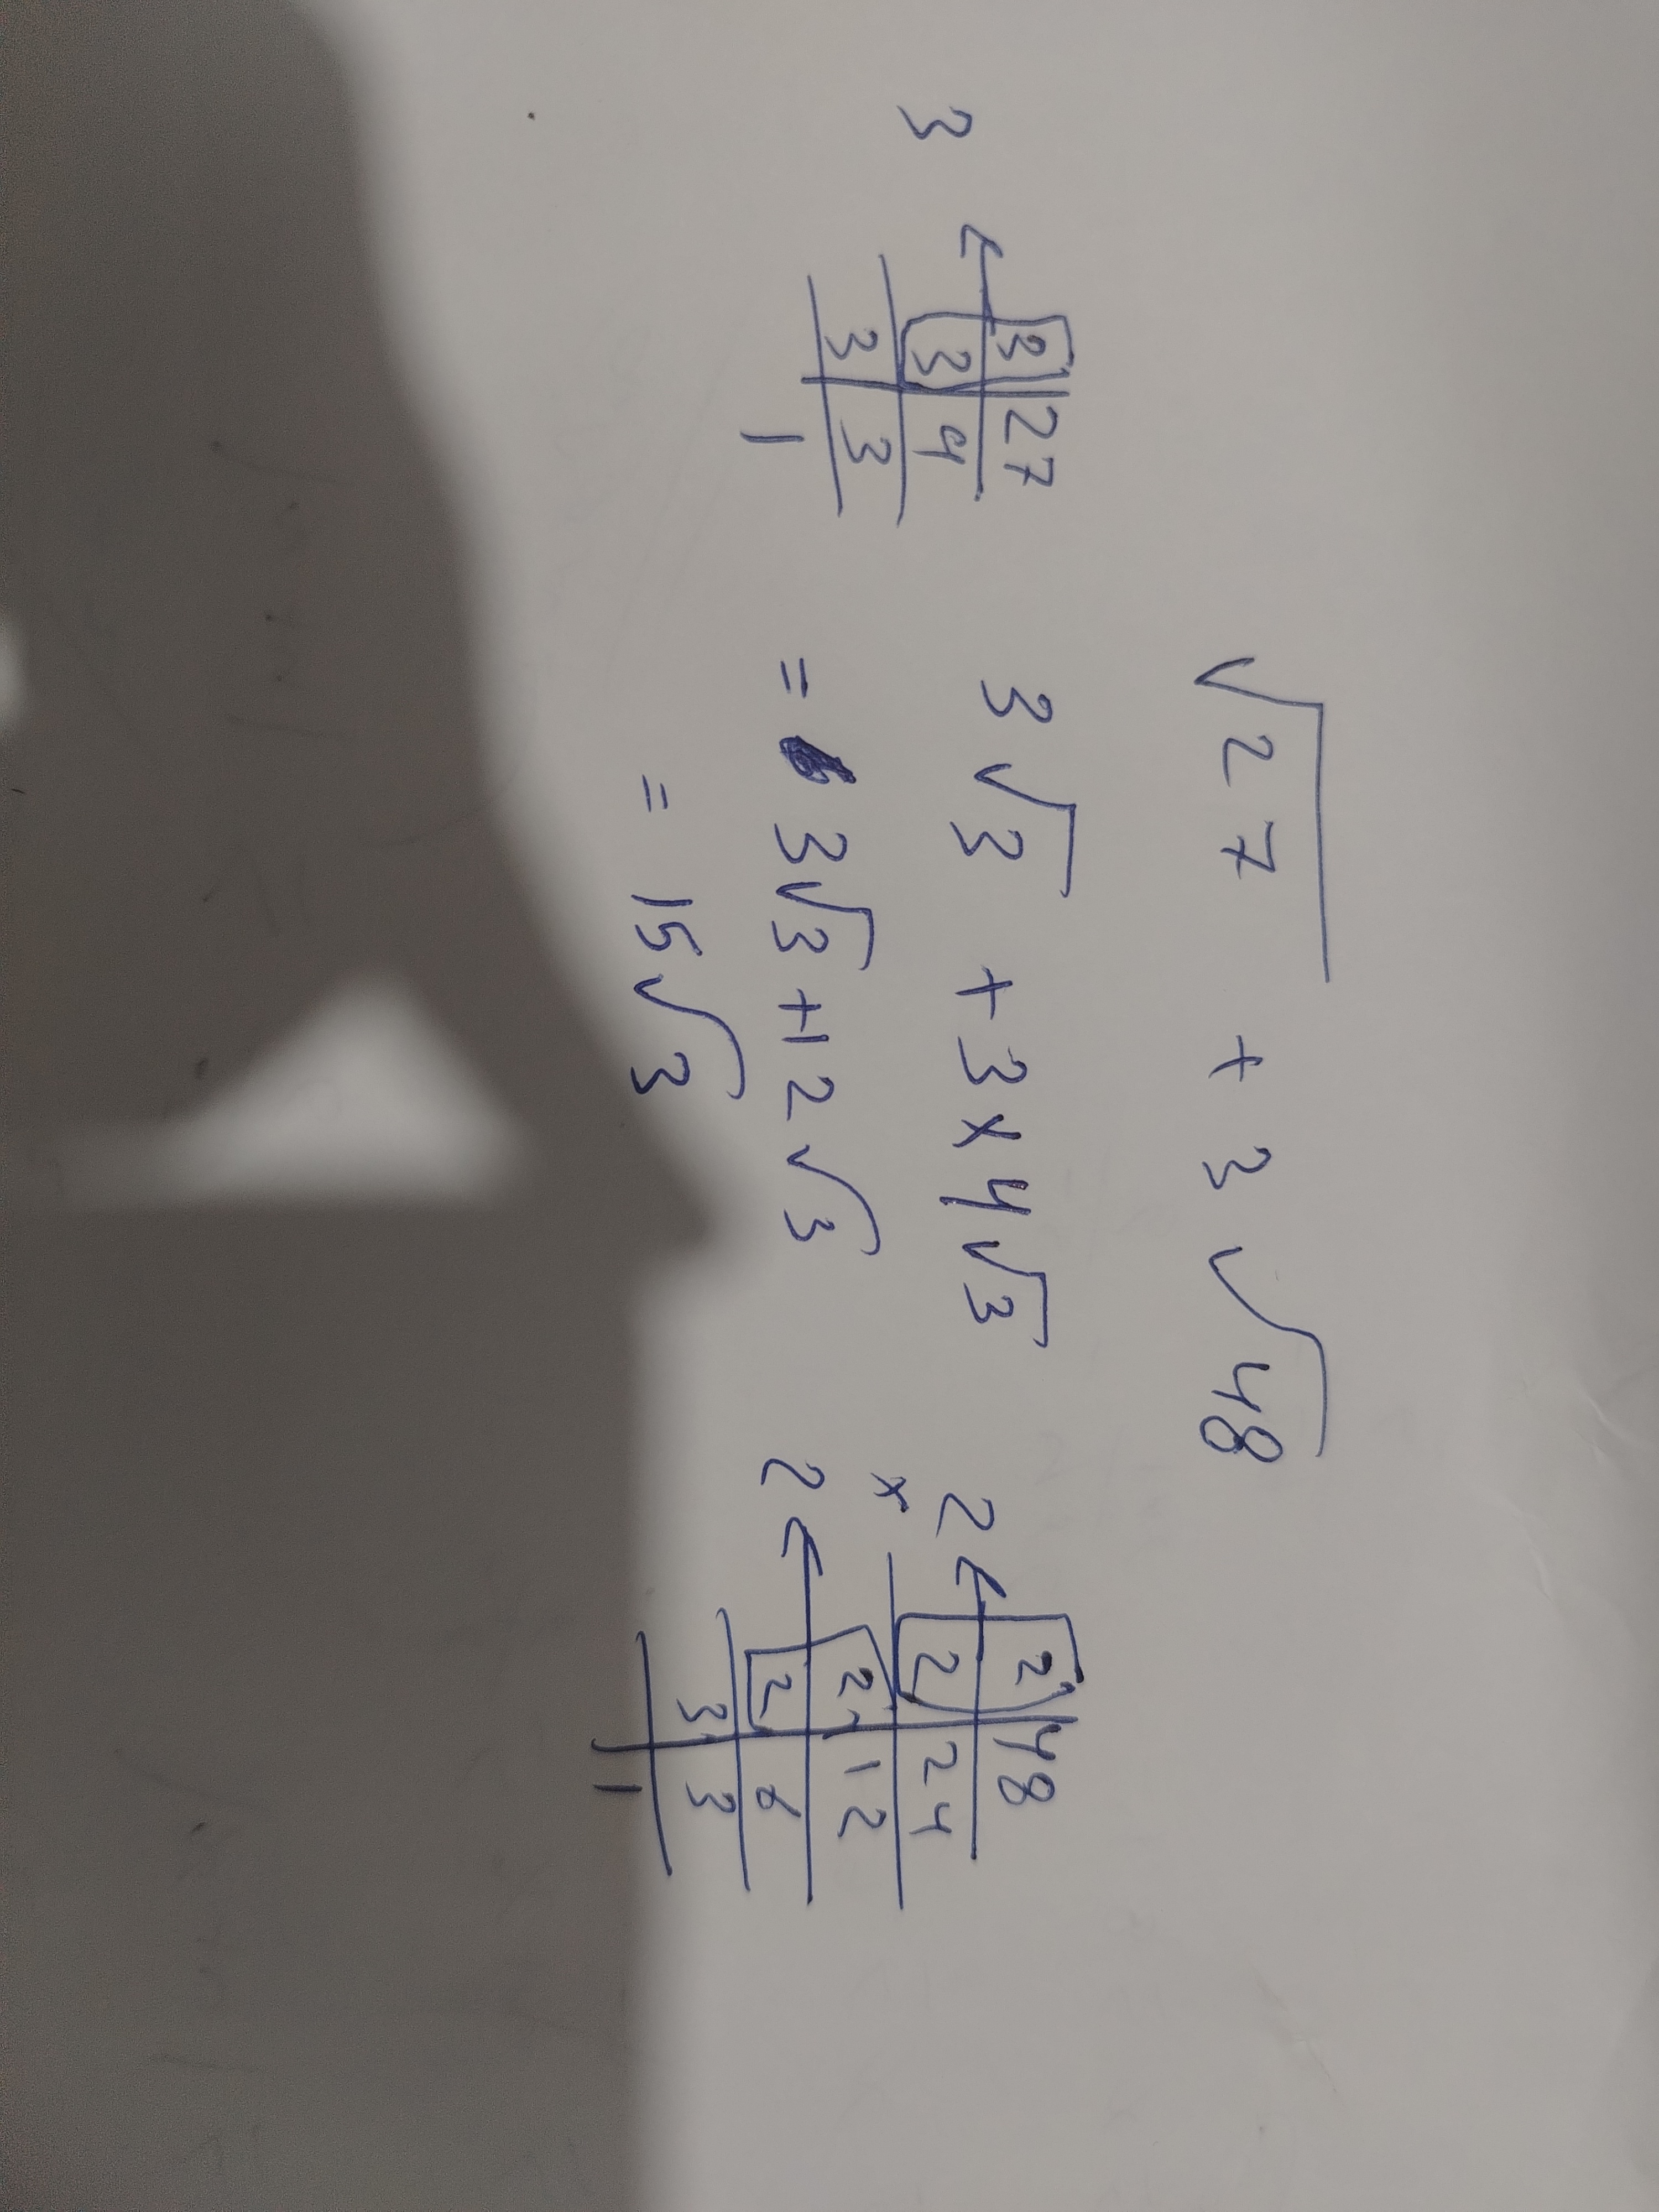 √27 + 3√48
3√3 + 3×4√3
= 3√3 + 12√3
= 15√3
3 ← 3 | 27
3 | 9
3 | 3
1
2 ← 2 | 48
× 2 | 24
2 ← 2 | 12
2 | 6
3 | 3
1